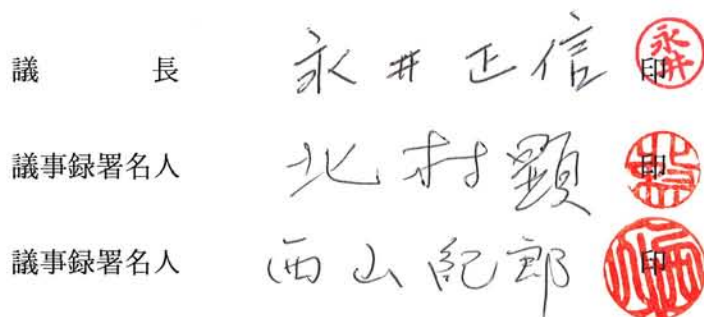 議長 永井正信 印
議事録署名人 北村顕 印
議事録署名人 西山紀郎 印